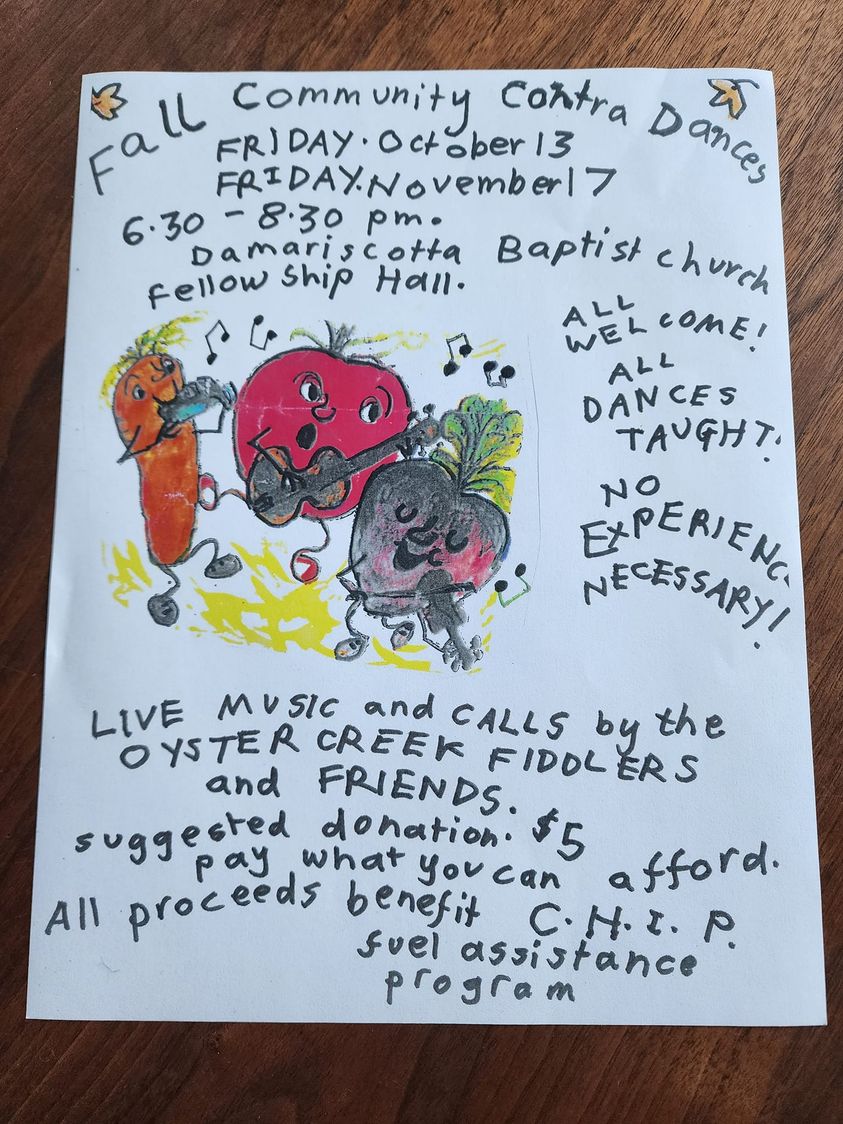 Fall Community Contra Dances
FRIDAY. October 13
FRIDAY. November 17
6.30 - 8.30 pm.
Damariscotta Baptist church
Fellow Ship Hall.
ALL
WELCOME!
ALL
DANCES
TAUGHT!
NO
EXPERIENC
NECESSARY!
LIVE MUSIC and CALLS by the
OYSTER CREEK FIDDLERS
and FRIENDS.
suggested donation. $5
pay what you can afford.
All proceeds benefit C.H.I.P.
fuel assistance
program